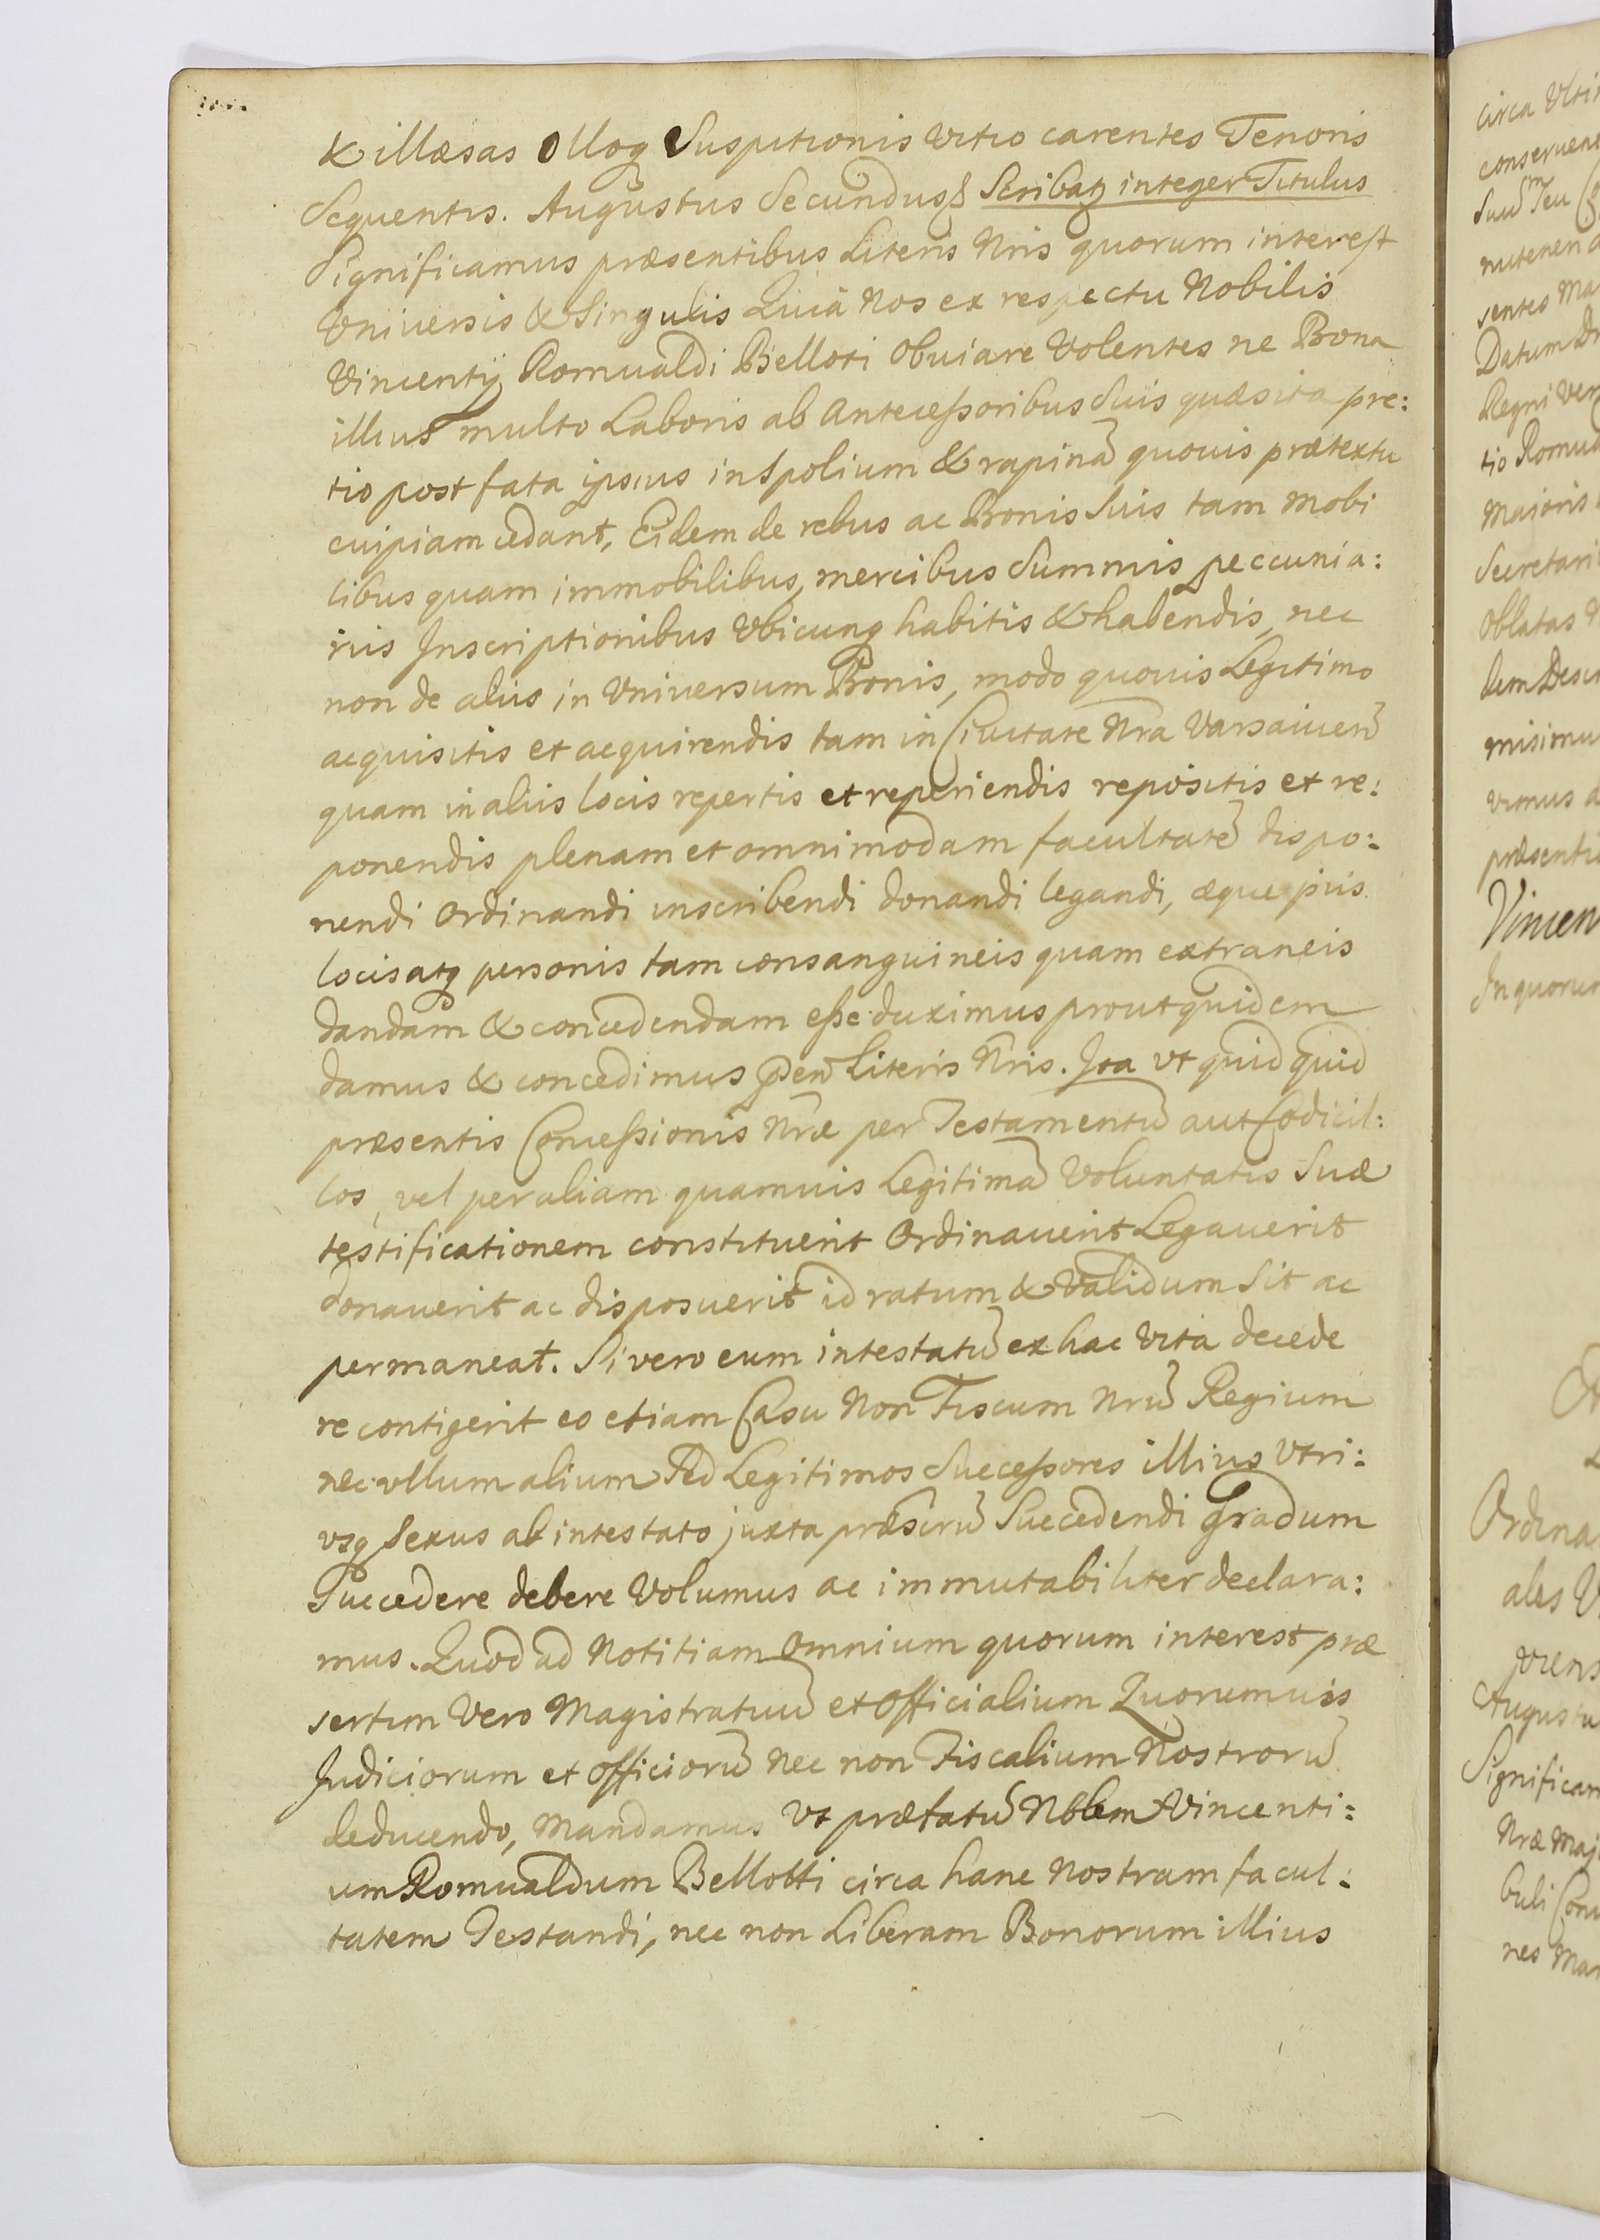 & illæsas Ollog Suspitionis vitio carentes Tenoris
Sequentis. Augustus Secundus Scribatz integer Titulus
Significamus præsentibus Literis Nris quorum interest
Vniversis & Singulis Quia Nos ex respectu Nobilis
Vincentÿ Romualdi Belloti Obviare Volentes ne Bona
illius multo Laboris ab Antecessoribus Suis quæsita pre:
tio post fata ipsius in Spolium & rapinã quovis prætextu
cuipiam cedant, Eidem de rebus ac Bonis Suis tam Mobi
libus quam immobilibus, mercibus Summis peccunia:
riis Inscriptionibus Vbicunq habitis & habendis, nec
non de aliis in Vniversum Bonis, modo quovis Legitimo
acquisitis et acquirendis tam in Civitate Nra Varsavien
quam in aliis locis repertis et reperiendis repositis et re:
ponendis plenam et omnimodam facultatẽ dispo:
nendi Ordinandi inscribendi donandi legandi, æque piis
locis atq personis tam consanguineis quam extraneis
dandam & concedendam esse duximus prout quidem
damus & concedimus pñen Literis Nris. Ita vt quid quid
præsentis Concessionis Nræ per Testamentũ aut Codicil:
los, vel per aliam quamvis Legitimã Voluntatis Suæ
testificationem constituerit Ordinaverit Legaverit
donaverit ac disposuerit id ratum & Validum Sit ac
permaneat. Si vero eum intestatũ ex hac Vita decede
re contigerit eo etiam Casu Non Fiscum Nrũ Regium
nec vllum alium Sed Legitimos Successores illius Vtri:
vsq sexus ab intestato juxta præscrũ Succedendi Gradum
Succedere debere Volumus ac immutabiliter declara:
mus. Quod ad Notitiam Omnium quorum interest præ
sertim Vero Magistratuũ et Officialium Quorumvis
Judiciorum et officiorũ nec non Fiscalium Nostrorũ
deducendo, Mandamus Vt præfatũ Nblem Vincenti:
um Romualdum Bellotti circa hanc Nostram facul:
tatem Testandi, nec non Liberam Bonorum illius
circa
conserven
Suũ
sentes Ma
Datum
Regni
tio Romua
Majoris
Secretari
Oblatas
misimus
vimus a
præsenti
Vincen
In quorum
Ordina
ales
Augustu
Significam
Nræ Maj
nes Man